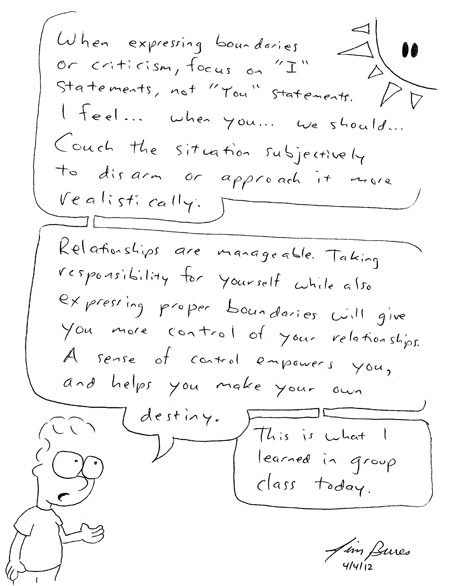 When expressing boundaries
or criticism, focus on "I"
statements, not "You" statements.
I feel... when you... we should...
Couch the situation subjectively
to disarm or approach it more
realistically.
Relationships are manageable. Taking
responsibility for yourself while also
expressing proper boundaries will give
you more control of your relationships.
A sense of control empowers you,
and helps you make your own
destiny.
This is what I
learned in group
class today.
Jim Bures
4/4/12